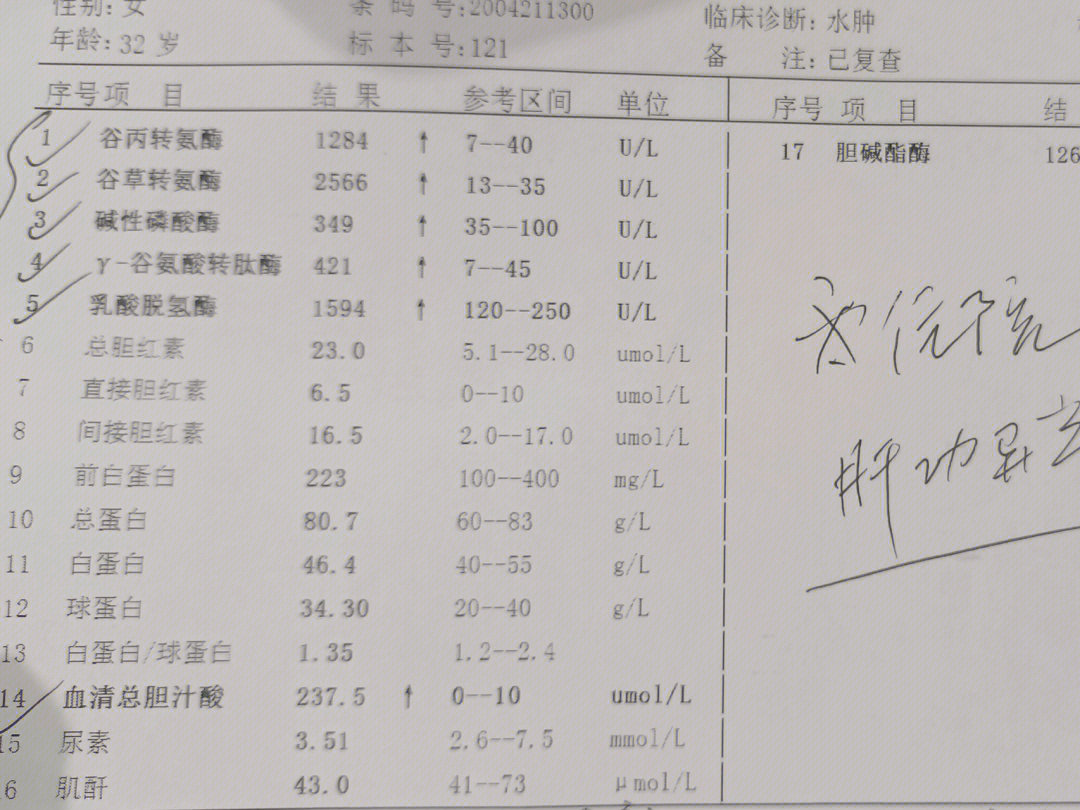 性别: 女 条 码 号:2004211300 临床诊断: 水肿
年龄: 32 岁 标 本 号:121 备 注: 已复查
序号 项 目 结 果 参考区间 单位 序号 项 目 结
1 谷丙转氨酶 1284 ↑ 7--40 U/L 17 胆碱酯酶 126
2 谷草转氨酶 2566 ↑ 13--35 U/L
3 碱性磷酸酶 349 ↑ 35--100 U/L
4 γ-谷氨酸转肽酶 421 ↑ 7--45 U/L
5 乳酸脱氢酶 1594 ↑ 120--250 U/L
6 总胆红素 23.0 5.1--28.0 umol/L
7 直接胆红素 6.5 0--10 umol/L
8 间接胆红素 16.5 2.0--17.0 umol/L
肝功异
9 前白蛋白 223 100--400 mg/L
10 总蛋白 80.7 60--83 g/L
11 白蛋白 46.4 40--55 g/L
12 球蛋白 34.30 20--40 g/L
13 白蛋白/球蛋白 1.35 1.2--2.4
14 血清总胆汁酸 237.5 ↑ 0--10 umol/L
15 尿素 3.51 2.6--7.5 mmol/L
6 肌酐 43.0 41--73 μmol/L